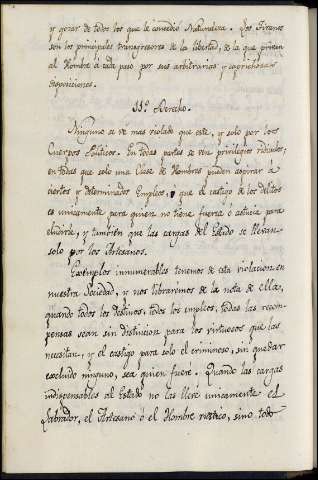 y gozar de todos los que le concedió Naturaleza. Los Tiranos
son los principales transgresores de la libertad, de la que privan
al Hombre a cada paso por sus arbitrarias y caprichosas
disposiciones.
11º Derecho.
Ninguno se ve mas violado que este, y solo por los
Cuerpos Politicos. En todas partes se ven privilegios ridiculos,
en todas que solo una Clase de Hombres pueden aspirar à
ciertos y determinados Empleos, y que el castigo de los delitos
es unicamente para quien no tiene fuerza ó astucia para
eludirle, y tambien que las cargas del Estado se lleban
solo por los Artesanos.
Exemplos innumerables tenemos de esta violacion en
nuestra Sociedad, y nos libraremos de la nota de ellas,
quando todos los destinos, todos los empleos, todas las recom-
pensas sean sin distincion para los virtuosos que las
necesitan, y el castigo para solo el criminoso, sin quedar
excluido ninguno, sea quien fuere. Quando las cargas
indispensables al Estado no las lleve unicamente el
Labrador, el Artesano ó el Hombre rustico, sino todos